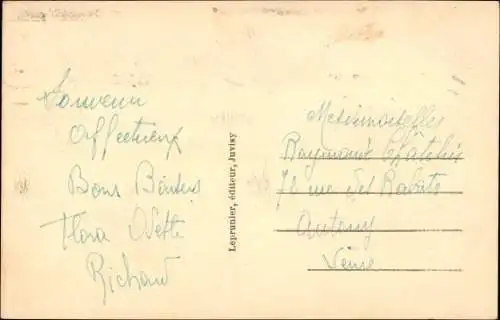 Souvenir
Affectueux
Bons Baisers
Flora Odette
Richard
Leprunier, éditeur, Juvisy
Mesdemoiselles
Raymonde
72 rue des Rabats
Antony
Seine